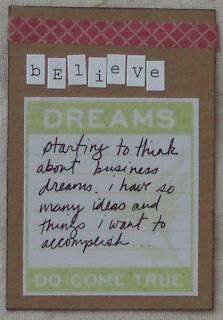 bElieve
DREAMS
starting to think
about business
dreams. i have so
many ideas and
things i want to
accomplish...
DO COME TRUE